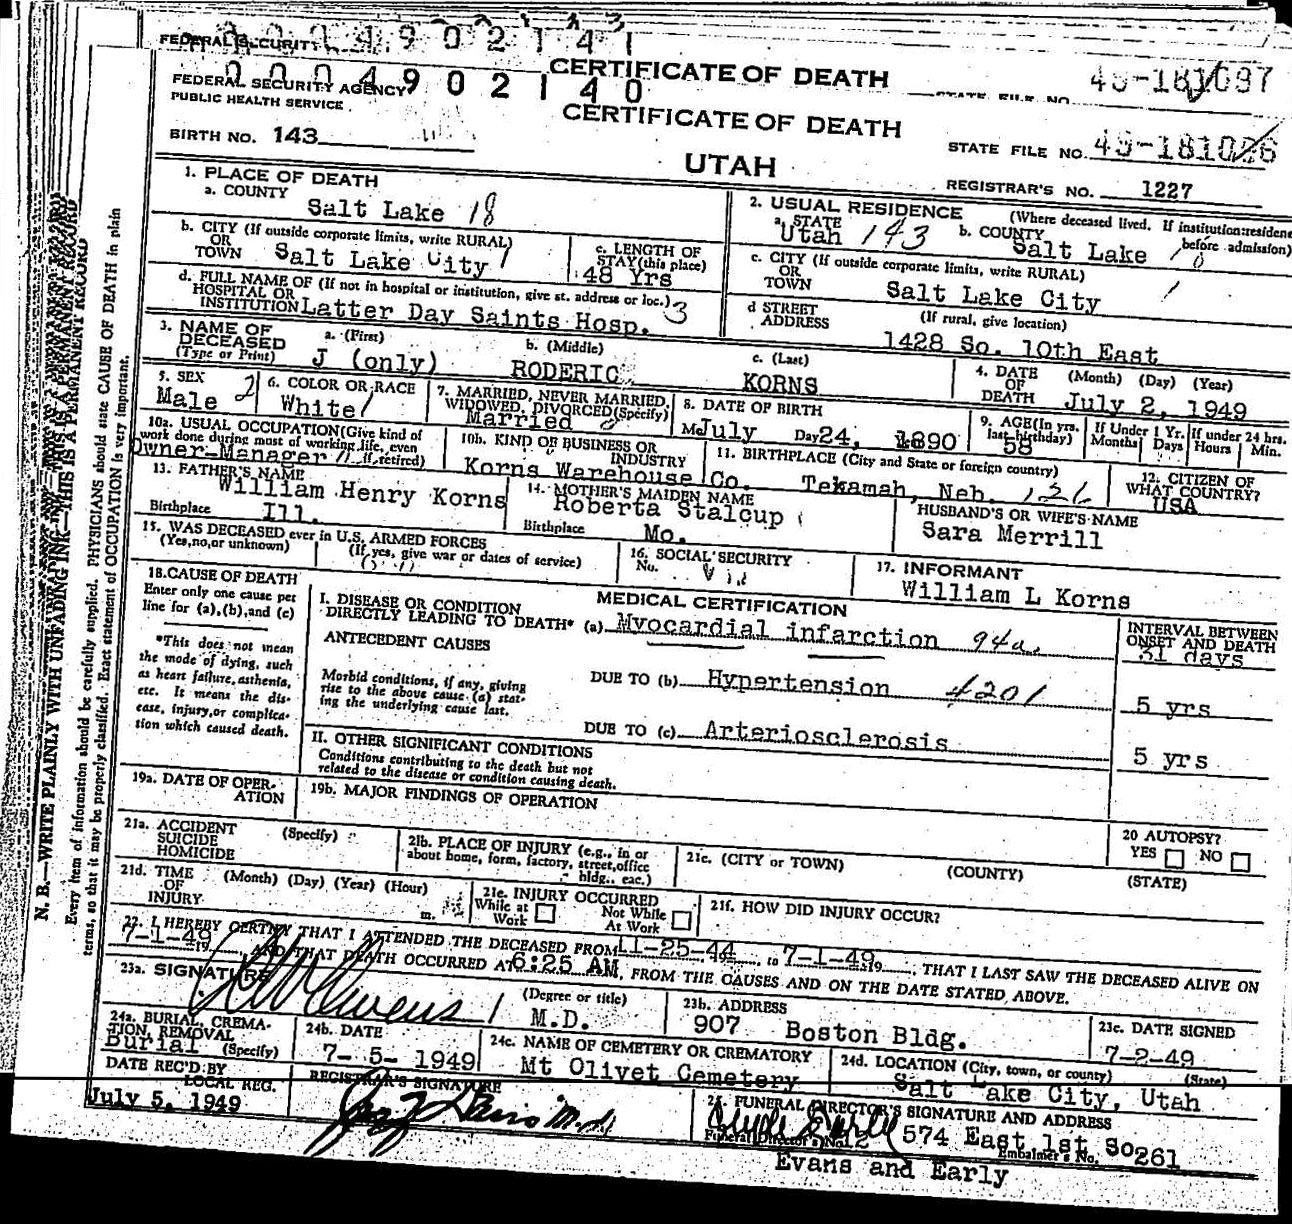 FEDERAL SECURITY
4902141
CERTIFICATE OF DEATH
STATE FILE NO.
FEDERAL SECURITY AGENCY
0004902140
PUBLIC HEALTH SERVICE
CERTIFICATE OF DEATH
BIRTH NO. 143
UTAH
STATE FILE NO.
REGISTRAR'S NO. 1227
1. PLACE OF DEATH
a. COUNTY
Salt Lake 18
2. USUAL RESIDENCE (Where deceased lived. If institution: residence before admission)
a. STATE Utah 143 b. COUNTY Salt Lake 18
b. CITY (If outside corporate limits, write RURAL)
OR
TOWN Salt Lake City 1
c. LENGTH OF
STAY (this place)
48 Yrs
c. CITY (If outside corporate limits, write RURAL)
OR
TOWN Salt Lake City 1
d. FULL NAME OF (If not in hospital or institution, give st. address or loc.)
HOSPITAL OR
INSTITUTION Latter Day Saints Hosp. 3
d STREET
ADDRESS
(If rural, give location)
1428 So. 10th East
3. NAME OF
DECEASED
(Type or Print)
a. (First)
J (only)
b. (Middle)
RODERIC
c. (Last)
KORNS
4. DATE
OF
DEATH
(Month) (Day) (Year)
July 2, 1949
5. SEX
Male 2
6. COLOR OR RACE
White 1
7. MARRIED, NEVER MARRIED,
WIDOWED, DIVORCED (Specify)
Married
8. DATE OF BIRTH
July Day 24, 1890
9. AGE (In yrs.
last birthday)
58
If Under 1 Yr.
Months Days
If under 24 hrs.
Hours Min.
10a. USUAL OCCUPATION (Give kind of
work done during most of working life, even
if retired)
Owner-Manager
10b. KIND OF BUSINESS OR
INDUSTRY
Korns Warehouse Co.
11. BIRTHPLACE (City and State or foreign country)
Tekamah, Neb. 126
12. CITIZEN OF
WHAT COUNTRY?
USA
13. FATHER'S NAME
William Henry Korns
Birthplace Ill.
14. MOTHER'S MAIDEN NAME
Roberta Stalcup
Birthplace Mo.
HUSBAND'S OR WIFE'S NAME
Sara Merrill
15. WAS DECEASED ever in U.S. ARMED FORCES
(Yes, no, or unknown) (If yes, give war or dates of service)
16. SOCIAL SECURITY
No.
17. INFORMANT
William L Korns
18. CAUSE OF DEATH
Enter only one cause per
line for (a), (b), and (c)
*This does not mean
the mode of dying, such
as heart failure, asthenia,
etc. It means the dis-
ease, injury, or complica-
tion which caused death.
MEDICAL CERTIFICATION
I. DISEASE OR CONDITION
DIRECTLY LEADING TO DEATH* (a) Myocardial infarction 94a.
INTERVAL BETWEEN
ONSET AND DEATH
31 days
ANTECEDENT CAUSES
Morbid conditions, if any, giving
rise to the above cause (a) stat-
ing the underlying cause last.
DUE TO (b) Hypertension 4201
5 yrs
DUE TO (c) Arteriosclerosis
5 yrs
II. OTHER SIGNIFICANT CONDITIONS
Conditions contributing to the death but not
related to the disease or condition causing death.
19a. DATE OF OPER-
ATION
19b. MAJOR FINDINGS OF OPERATION
20 AUTOPSY?
YES NO
21a. ACCIDENT
SUICIDE
HOMICIDE
(Specify)
21b. PLACE OF INJURY (e.g., in or
about home, form, factory, street, office
bldg., eac.)
21c. (CITY or TOWN) (COUNTY) (STATE)
21d. TIME
OF
INJURY
(Month) (Day) (Year) (Hour)
m.
21e. INJURY OCCURRED
While at
Work
Not While
At Work
21f. HOW DID INJURY OCCUR?
22. I HEREBY CERTIFY THAT I ATTENDED THE DECEASED FROM 11-25-44 19, to 7-1-49 19, THAT I LAST SAW THE DECEASED ALIVE ON
7-1-49 19, AND THAT DEATH OCCURRED AT 6:25 AM, FROM THE CAUSES AND ON THE DATE STATED ABOVE.
23a. SIGNATURE
(Degree or title)
M.D.
23b. ADDRESS
907 Boston Bldg.
23c. DATE SIGNED
7-2-49
24a. BURIAL, CREMA-
TION, REMOVAL
(Specify)
Burial
24b. DATE
7- 5- 1949
24c. NAME OF CEMETERY OR CREMATORY
Mt Olivet Cemetery
24d. LOCATION (City, town, or county) (State)
Salt Lake City, Utah
DATE REC'D BY
LOCAL REG.
July 5, 1949
REGISTRAR'S SIGNATURE
25. FUNERAL DIRECTOR'S SIGNATURE AND ADDRESS
Clyde Early 574 East 1st So
Funeral Director's No. 12 Embalmer's No. 261
Evans and Early
N. B.—WRITE PLAINLY WITH UNFADING INK—THIS IS A PERMANENT RECORD
Every item of information should be carefully supplied. PHYSICIANS should state CAUSE OF DEATH in plain
terms, so that it may be properly classified. Exact statement of OCCUPATION is very important.